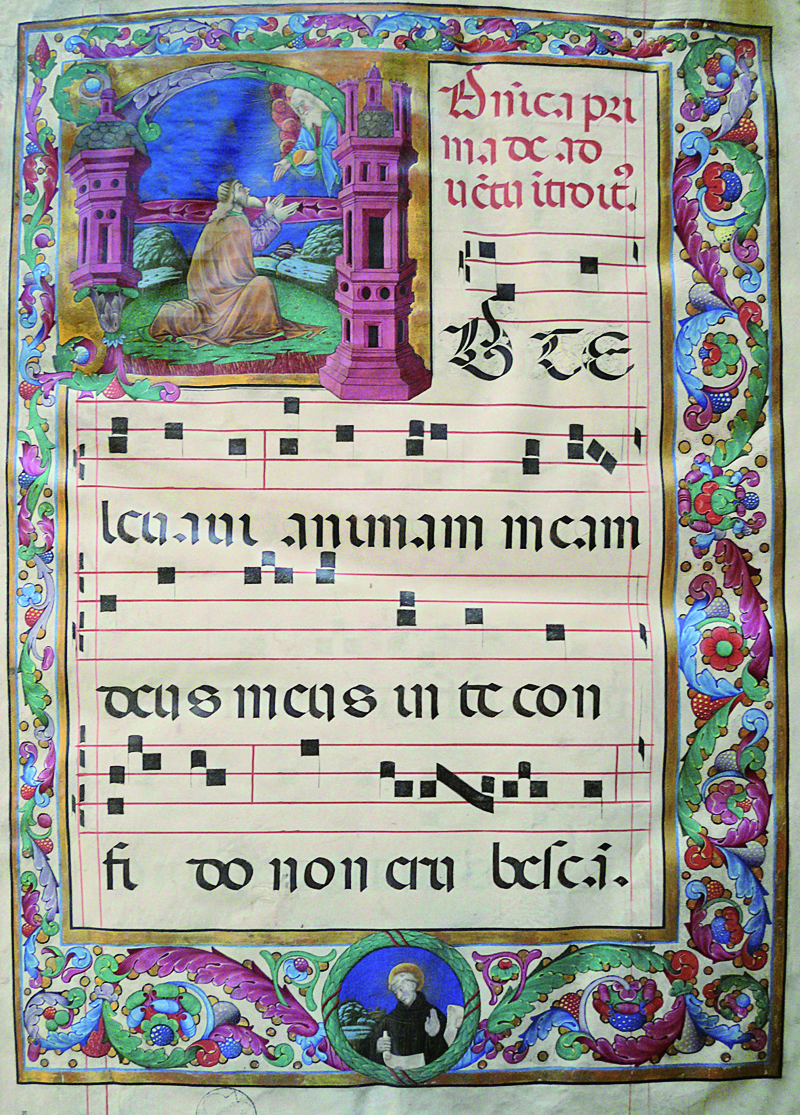 Dn̄ica pri
ma de ad
uētu ītroit9.
AD TE
leuaui animam meam
deus meus in te con
fi do non eru besc.ā.